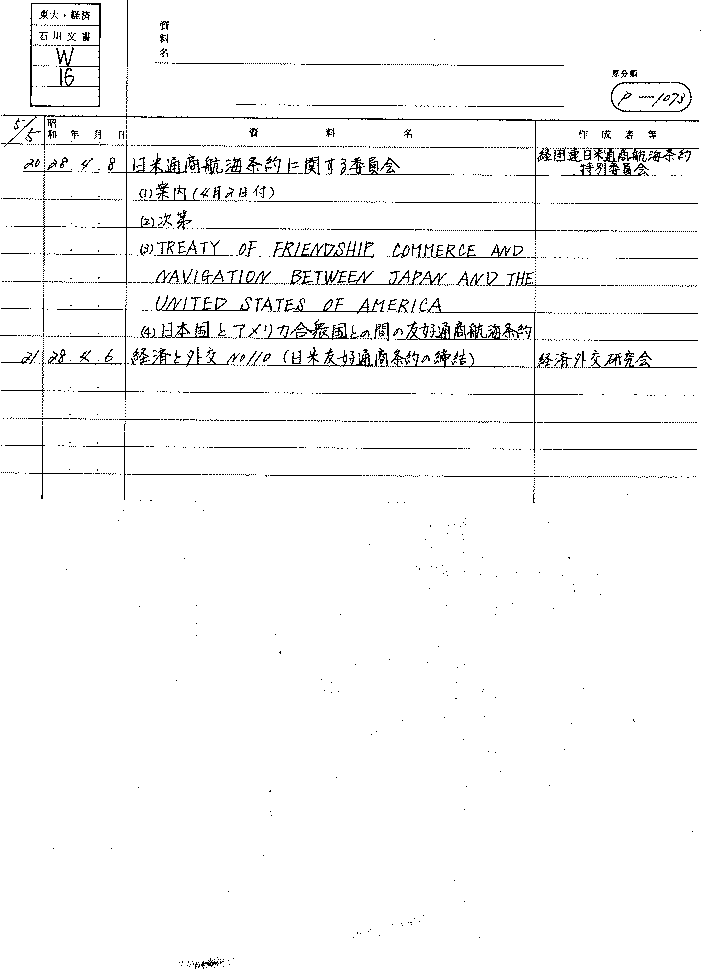 東大・経済
石川文書
W
16
資料名
原分類
P-1073
5/5 昭和 年 月 日 資料名 作成者等
20 28 4 8 日米通商航海条約に関する委員会 経団連日米通商航海条約特別委員会
(1)案内(4月2日付)
(2)次第
(3)TREATY OF FRIENDSHIP, COMMERCE AND
NAVIGATION BETWEEN JAPAN AND THE
UNITED STATES OF AMERICA
(4)日本国とアメリカ合衆国との間の友好通商航海条約
21 28 4 6 経済と外交 No110 (日米友好通商条約の締結) 経済外交研究会